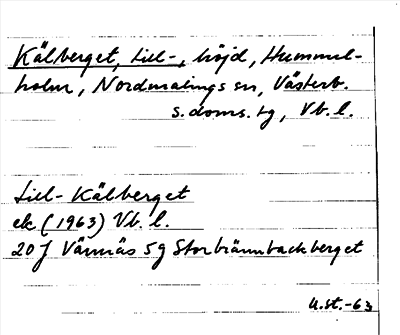 Kälberget, Lill-, höjd, Hummel-
holm, Nordmalings sn, Västerb.
s. doms. tg, Vb. l.
Lill-Kälberget
ek (1963) Vb. l.
20 J Vännäs 5 g Storbrännbackberget
U.st.-63